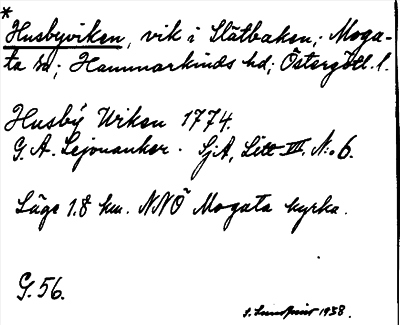 *
Husbyviken, vik i Slätbaken; Moga-
ta sn; Hammarkinds hd; Östergötl. l.
Husby Wiken 1774.
G. A. Lejonanker. SjA, Litt III. N:o 6.
Läge 1.8 km. NNÖ Mogata kyrka.
G. 56.
S. Lundqvist 1938.